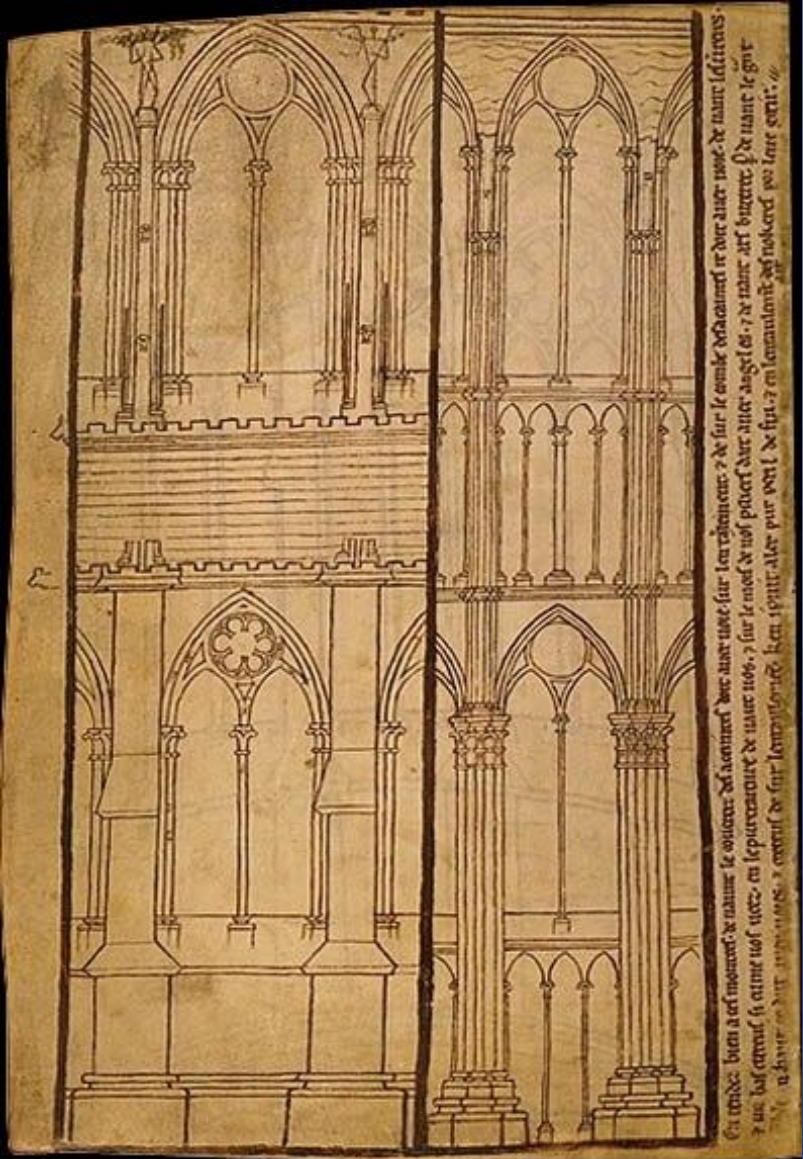 En tendez bien a ces montees. de uaunt le couertic des acaintes doit auer uoie sur lentaulement. 7 de sur le comble des acaintes re doit auer uoie. de uant les uirieres.
7 un bas creteus si cume uos ueez. en le purtraiture de uant uos. 7 sur le mors de uos pilers doit auer angeles. 7 de uant ars buteret. de uant le gnt
haut re doit auer uoies. 7 creteus de sur lentaulement. ken i puist aler pur peril de fu. 7 en lentaulement nokeres por leue getir.